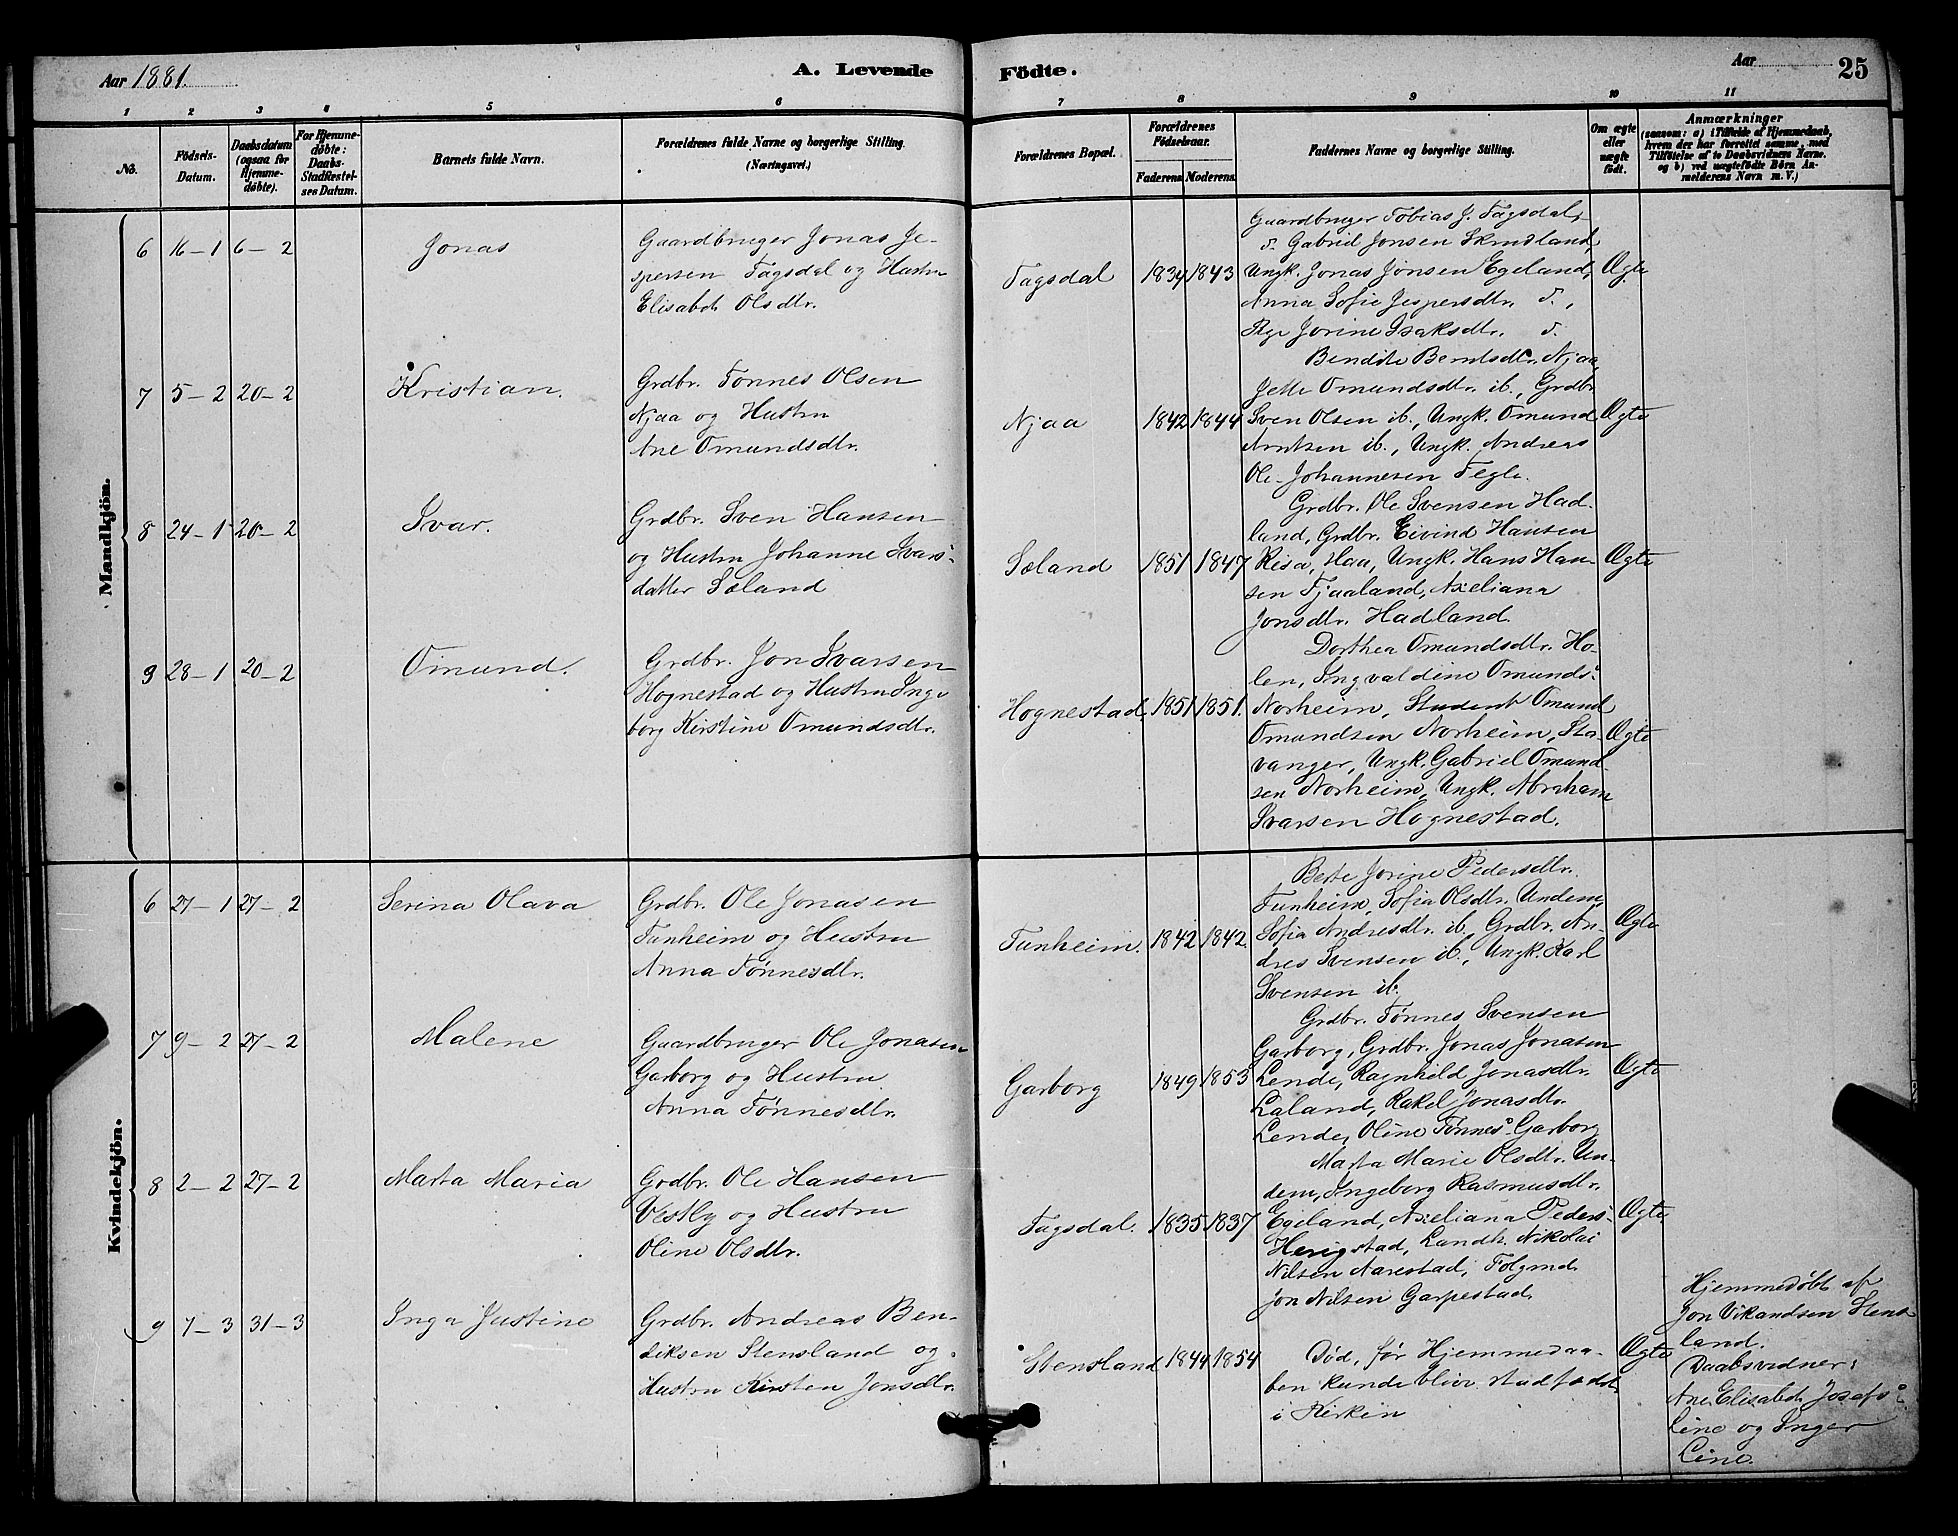 Aar 1881.
A. Levende Födte.
Aar
25
1 2 3 4 5 6 7 8 9 10 11
No.
Födsels-
Datum.
Daabsdatum
(ogsaa for
Hjemme-
döbte).
For Hjemme-
döbte:
Daabs-
Stadfæstel-
ses Datum.
Barnets fulde Navn.
Forældrenes fulde Navne og borgerlige Stilling.
(Næringsvei.)
Forældrenes Bopæl.
Forældrenes
Födselsaar.
Faderens. Moderens.
Faddernes Navne og borgerlige Stilling.
Om ægte
eller
uægte
födt.
Anmærkninger
(saasom: a) i Tilfælde af Hjemmedaab,
hvem der har forrettet samme, med
Tilföielse af to Daabsvidners Navne,
og b) ved uægtefödte Börn An-
melderens Navn m. V.)
Mandkjön.
6 16-1 6-2
Jonas
Gaardbruger Jonas Je-
spersen Tagsdal og Hustru
Elisabet Olsdtr.
Tagsdal 1834 1843
Gaardbruger Tobias J. Tagsdal,
d. Gabriel Jonsen Skrudland,
Ungk. Jonas Jonsen Egeland,
Anna Sofie Jespersdtr. d.,
Pige Jorine Isaksdtr. d.
Ægte
7 5-2 20-2
Kristian.
Grdbr. Tønnes Olsen
Njaa og Hustru
Ane Omundsdtr.
Njaa 1842 1844
Bendite Berntsdtr. Njaa,
Jette Omundsdtr. ib., Grdbr.
Sven Olsen ib., Ungk. Omund
Arntsen ib., Ungk. Andreas
Ole Johannesen Tegle.
Ægte
8 24-1 20-2
Ivar.
Grdbr. Sven Hansen
og Hustru Johanne Ivars-
datter Søland
Søland 1851 1847
Grdbr. Ole Svensen Had-
land, Grdbr. Eivind Hansen
Risa, Haa, Ungk. Hans Han-
sen Fjaaland, Axeliana
Jonsdtr. Hadland.
Ægte
9 28-1 20-2
Omund.
Grdbr. Jon Ivarsen
Hognestad og Hustru Inge
borg Kirstine Omundsdtr.
Hognestad 1851 1851.
Dorthea Omundsdtr. Ho-
len, Ingvaldine Omunds:
Norheim, Student Omund
Omundsen Norheim, Sta-
vanger, Ungk. Gabriel Omund-
sen Norheim, Ungk. Abraham
Ivarsen Hognestad.
Ægte
Kvindekjön.
6 27-1 27-2
Serina Olava
Grdbr. Ole Jonasen
Tunheim og Hustru
Anna Tønnesdtr.
Tunheim. 1842 1842
Berte Jorine Pedersdtr.
Tunheim, Sofia Olsdtr. Undem,
Sofia Andresdtr. ib. Grdbr. An-
dres Svensen ib., Ungk. Karl
Svensen ib.
Ægte
7 9-2 27-2
Malene
Gaardbruger Ole Jonasen
Garborg og Hustru
Anna Tønnesdtr.
Garborg 1849 1853
Grdbr. Tønnes Svensen
Garborg, Grdbr. Jonas Jonasen
Lende, Ragnhild Jonasdtr.
Laland, Rakel Jonasdtr.
Lende, Oline Tønnes: Garborg
Ægte
8 2-2 27-2
Marta Maria
Grdbr. Ole Hansen
Vestly og Hustru
Oline Olsdtr.
Tagsdal. 1835 1837
Marta Marie Olsdtr. Un-
dem, Ingeborg Rasmusdtr.
Egeland, Axeliana Peders:
Herigstad, Landh. Nikolai
Nilsen Aarestad, Folgmd.
Jon Nilsen Garpestad.
Ægte
9 7-3 31-3
Inga Justine
Grdbr. Andreas Ben-
diksen Stensland og
Hustru Kirsten Jonsdtr.
Stensland 1844 1854
Død, før Hjemmedaa-
ben kunde blive stadfæstet
i Kirken
Ægte
Hjemmedøbt af
Jon Vikandsen Stens-
land.
Daabsvidner:
Ane Elisabeth Josefs:
Line og Inger
Line.